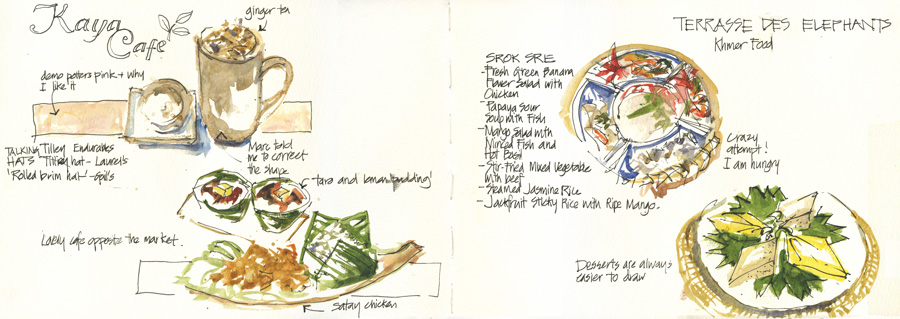 Kaya
Cafe
ginger tea
demo peters pink + why
I like it
TALKING Tilley Endurables
HATS Tilley hat - Laurel's
Rolled brim hat -
Marc told
me to correct
the shape
taro and lemon pudding
Lovely cafe opposite the market.
Satay chicken
TERRASSE DES ELEPHANTS
Khmer Food
SROK SRIE
- Fresh Green Banana
Flower Salad with
Chicken
- Papaya Sour
Soup with Fish
- Mango Salad with
Minced Fish and
Hot Basil
- Stir-Fried Mixed Vegetable
with beef
- Steamed Jasmine Rice
- Jackfruit Sticky Rice with Ripe Mango.
Crazy
attempt!
I am hungry
Desserts are always
easier to draw